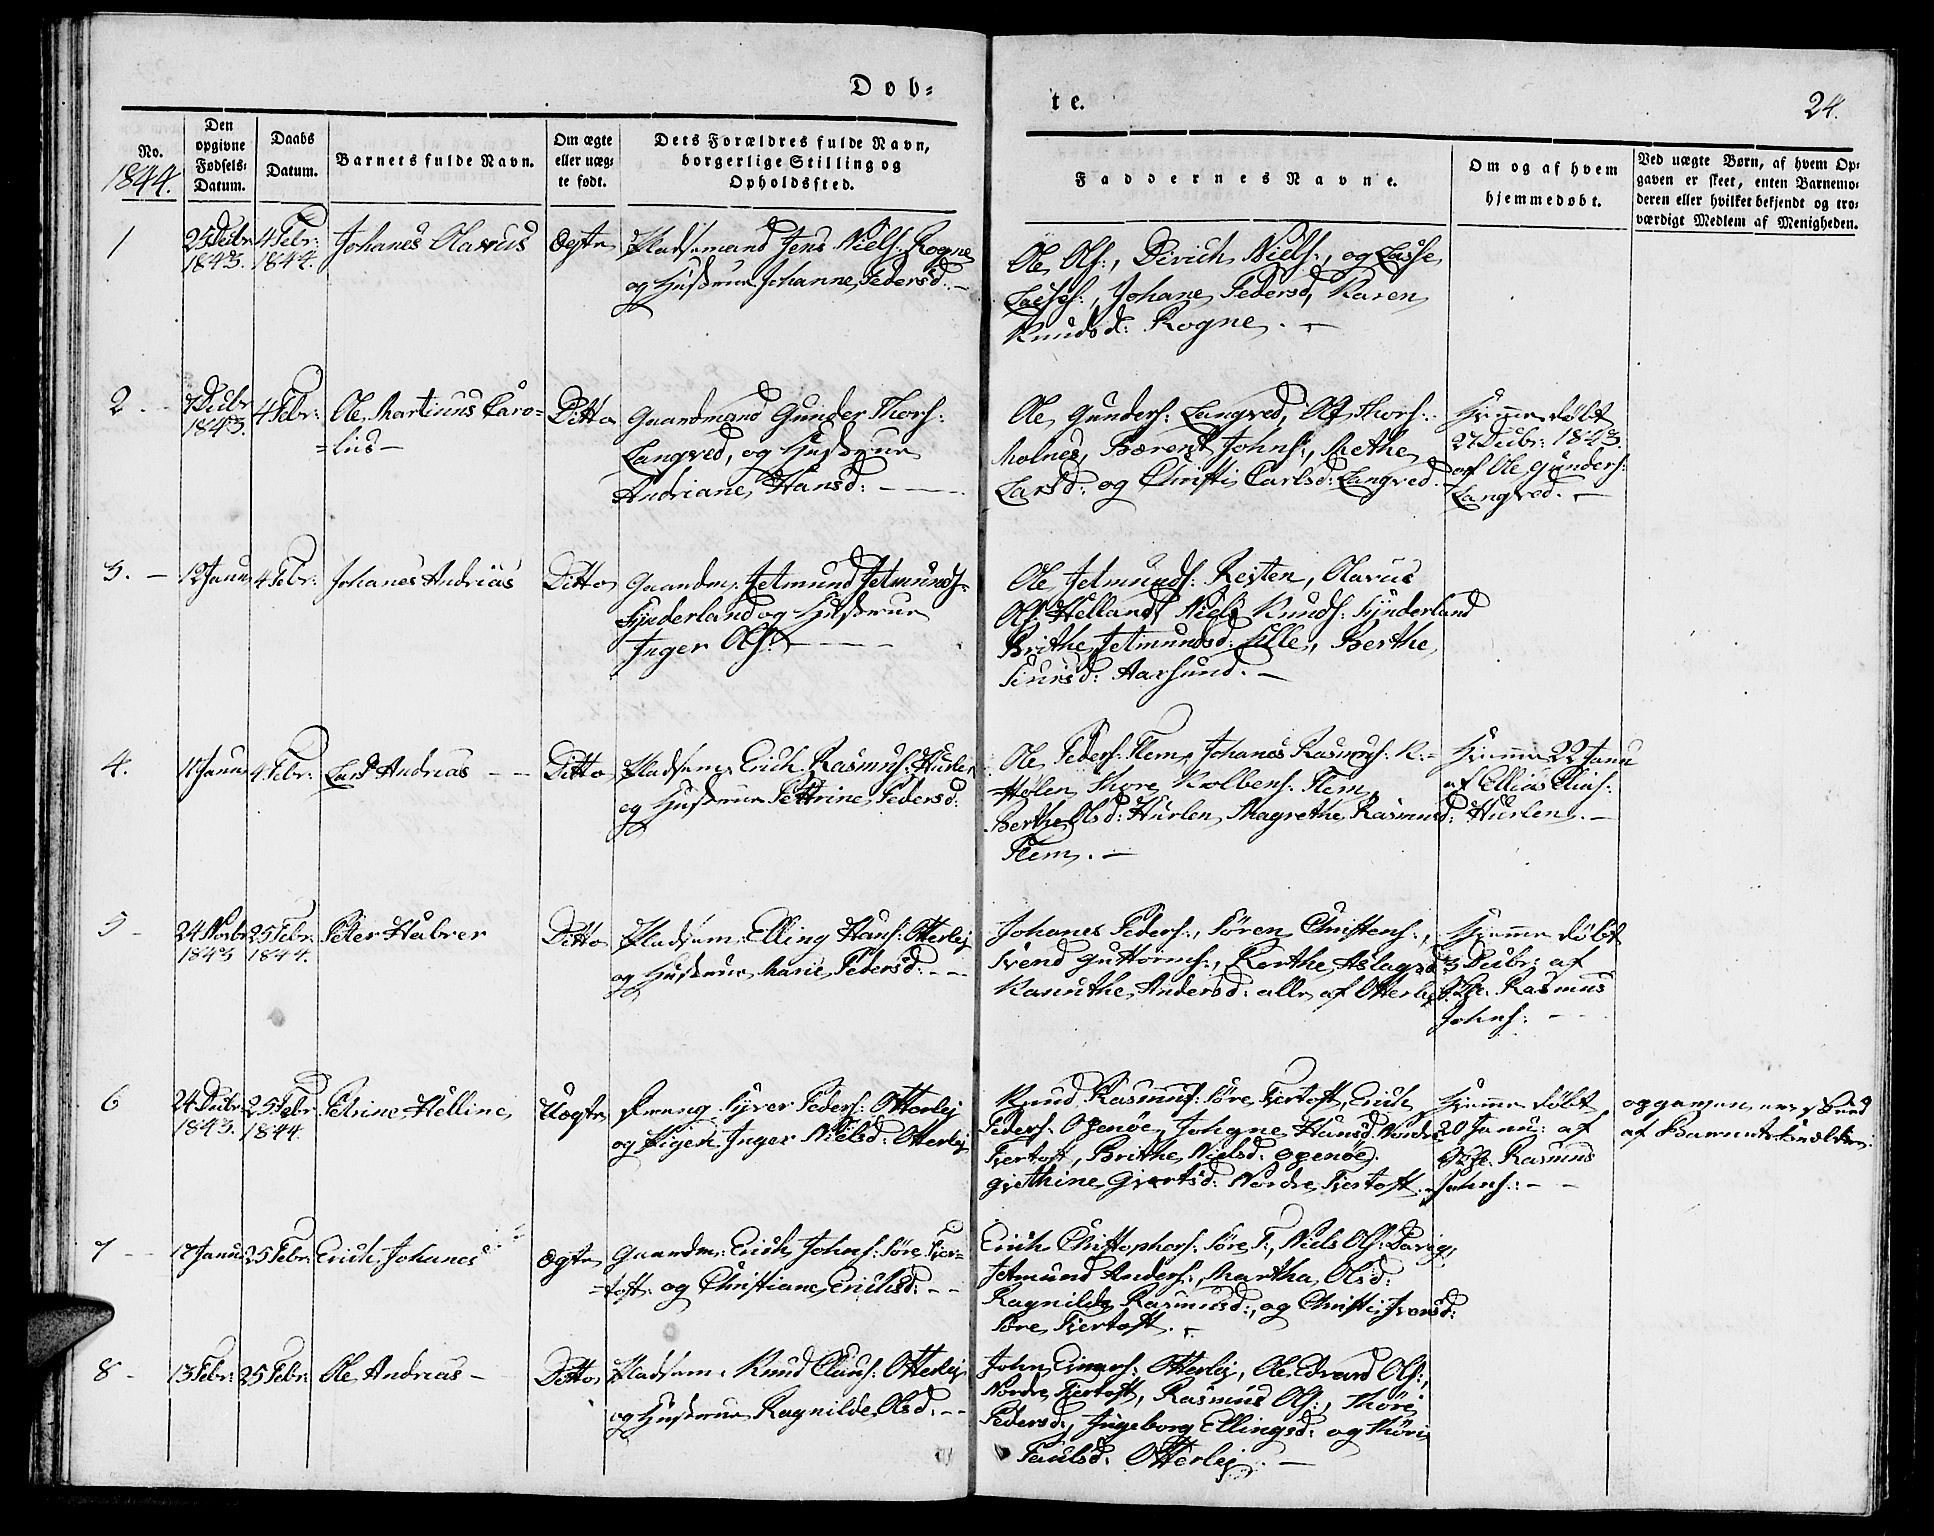 Døb=
te.
24.
No.
1844.
Den
opgivne
Fødsels=
Datum.
Daabs
Datum.
Barnets fulde Navn.
Om ægte
eller uæg=
te født.
Dets Forældres fulde Navn,
borgerlige Stilling og
Opholdssted.
Faddernes Navne.
Om og af hvem
hjemmedøbt.
Ved uægte Børn, af hvem Op=
gaven er skeet, enten Barnemo=
deren eller hvilket bekjendt og tro=
værdigt Medlem af Menigheden.
1
Decbr
1843.
4 Febr:
1844.
Johanes Olavus
Ægte
Pladsemand Jens Niels: Rogne
og Hustrue Johanne Pedersd: -
Ole Ols:, Dirich Niels:, og Lasse
Lasses:, Johane Pedersd, Karen
Knudsd: Rogne. -
2.
7 Decbr
1843.
4 Febr:
Ole Martinus Caro=
=lius -
Ditto
Gaardmand Gunder Thors:
Langved, og Hustrue
Andriane Hansd: -
Ole Gunders: Langved, Ols Thors:
Molnes, Bærent Johns:, Methe
Larsd: og Christi Carlsd: Langved. -
Hjemmedøbt
27 Decbr: 1843.
af Ole Gunders:
Langved. -
3. -
12 Janu
4 Febr:
Johanes Andrias
Ditto
Gaardm: Jetmund Jetmunds=
Synderland og Hustrue
Inger Ols: -
Ole Jetmunds: Resten, Olavus
Ols: Helland, Niels Knuds: Synderland
Brithe Jetmundsd: Lille, Berthe
Siursd: Aarsund. -
4.
11 Janu
4 Febr:
Lars Andreas - -
Ditto
Pladsem: Erich Rasmus: Hurlen
og Hustrue Pettrine Pedersd:
Ole Peders: Flem, Johanes Rasmus: K:=
=Hølen, Thore Kolbens: Flem,
Berthe Olsd: Hurlen, Magrethe Rasmusd:
Flem. -
Hjemme 22 Janu
af Ellias Elias:
Hurlen. -
5 -
24 Novbr
1843
25 Febr:
1844.
Peter Habrer
Ditto
Pladsem: Elling Hans: Otterlei
og Hustrue Marie Pedersd: - -
Johanes Peders:, Søren Christens:,
Svend Guttorms:, Berthe Aslagsd
Kanuthe Andersd: alle af Otterlei
Hjemmedøbt
3 Decbr: af
Rasmus
Johns: -
6
24 Decbr
1843.
25 Febr
1844.
Petrine Helline
Uægte
Dreng Syver Peders: Otterlej
og Pigen Inger Nielsd: Otterlej
Knud Rasmus: Søre Fiertoft, Erich
Peders: Ogenøe, Johane Hansd: Nordre
Fiertoft, Brithe Nielsd: Ogenøe,
Grethine Giertsd: Nordre Fiertoft. -
Hjemmedøbt
20 Janu: af
Rasmus
Johns: - -
opgaven er skeed
af Barnets Forældre.
7 -
17 Janu
25 Febr
Erich Johanes
Ægte
Gaardm: Erich Johns: Søre Fier=
=toft og Christiane Erichsd: - -
Erich Christophers: Søre F:, Niels Ols: Davig,
Jetmund Anders:, Martha Olsd:
Ragnilde Rasmusd:, og Christi Iversd:
Søre Fiertoft. -
8 -
13 Febr:
25 Febr:
Ole Andreas -
Ditto
Pladsem: Knud Claus: Otterlej
og Hustrue Ragnilde Olsd: - -
John Einars: Otterlej, Ole Edvard Ols:,
Nordre Fiertoft, Rasmus Ols:, Thore
Pedersd:, Ingeborg Ellingsd: og Thore
Paulsd: Otterlej. -